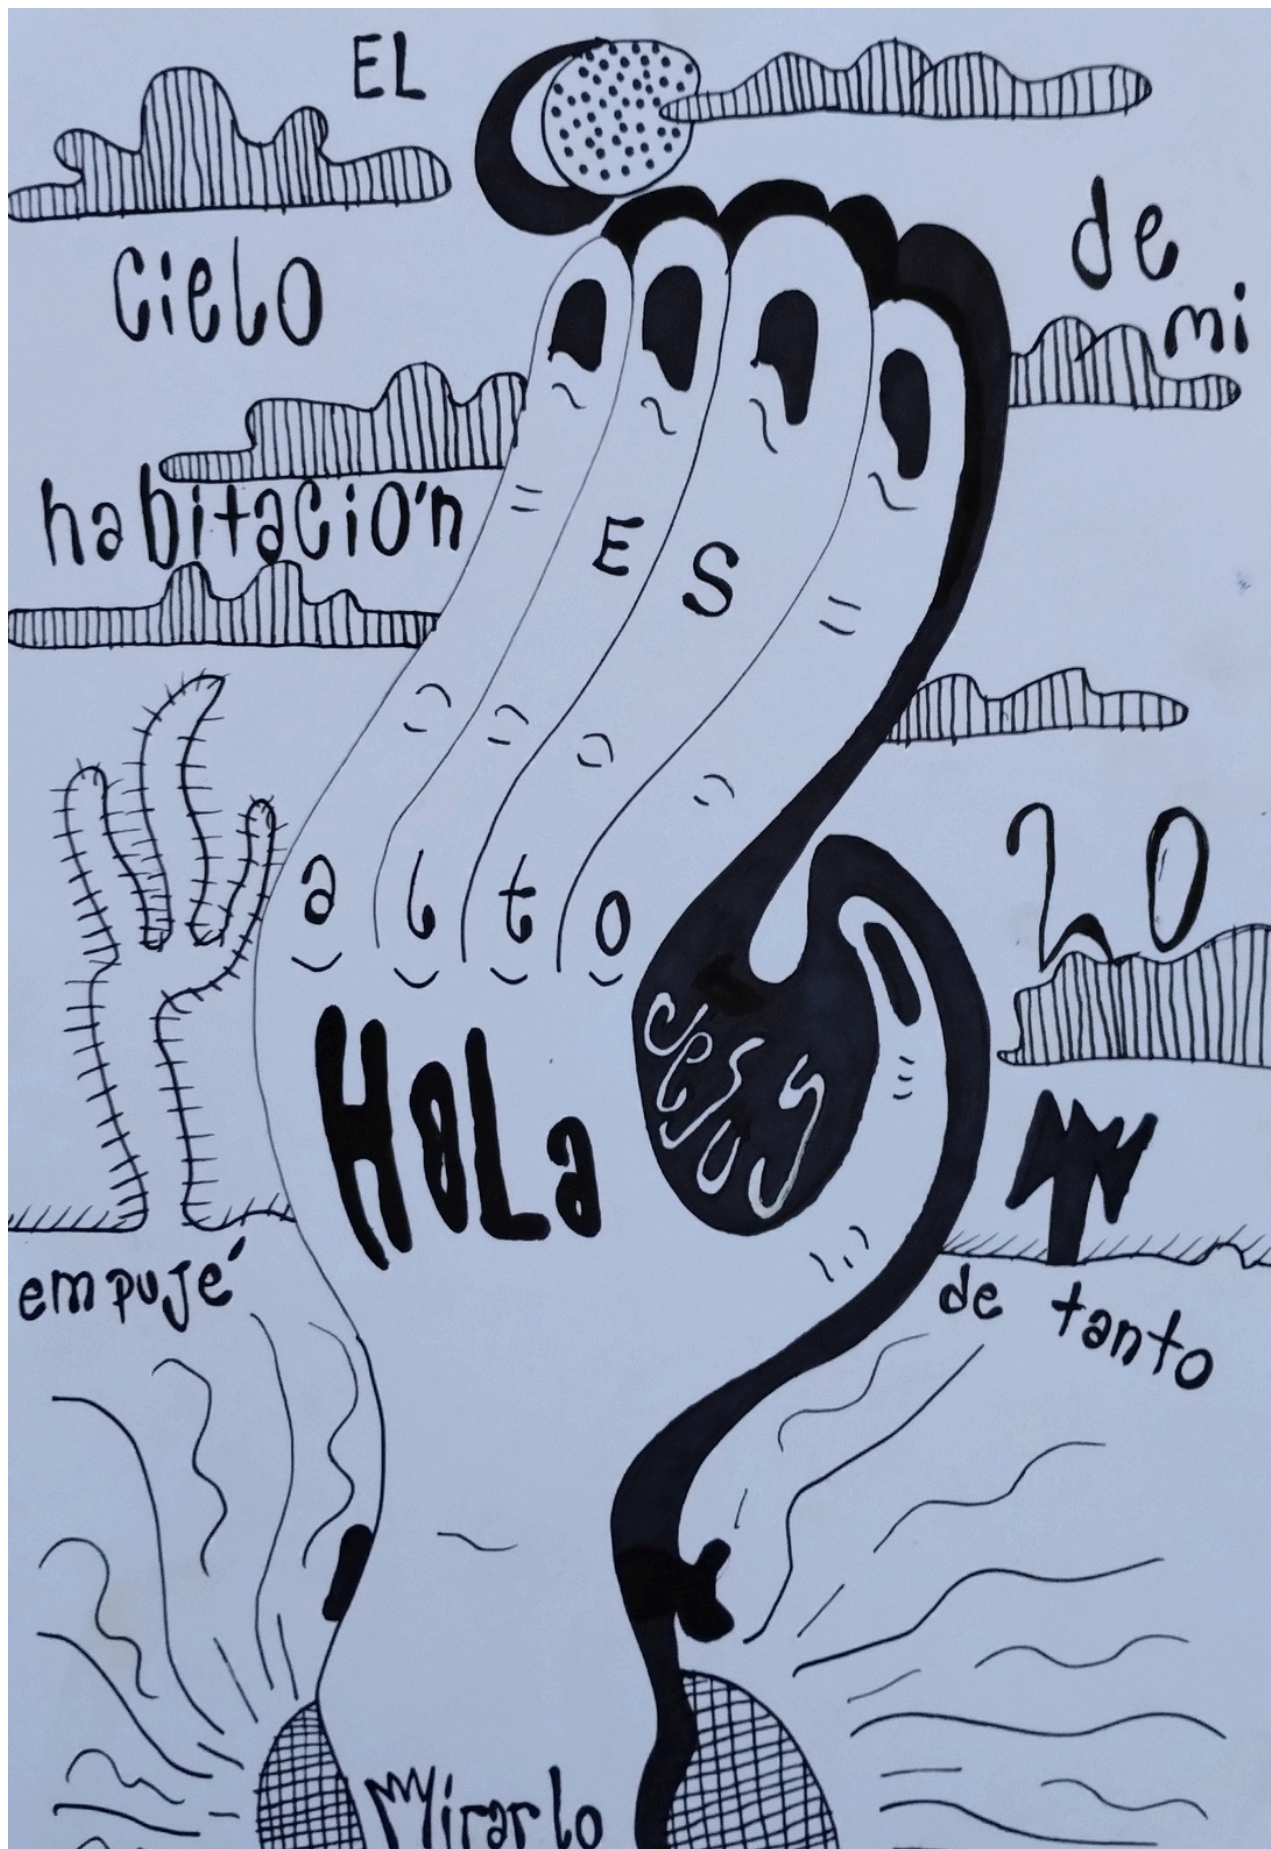 EL
cielo
de
mi
habitación
ES
alto
LO
HoLa
empujé
de tanto
Mirarlo